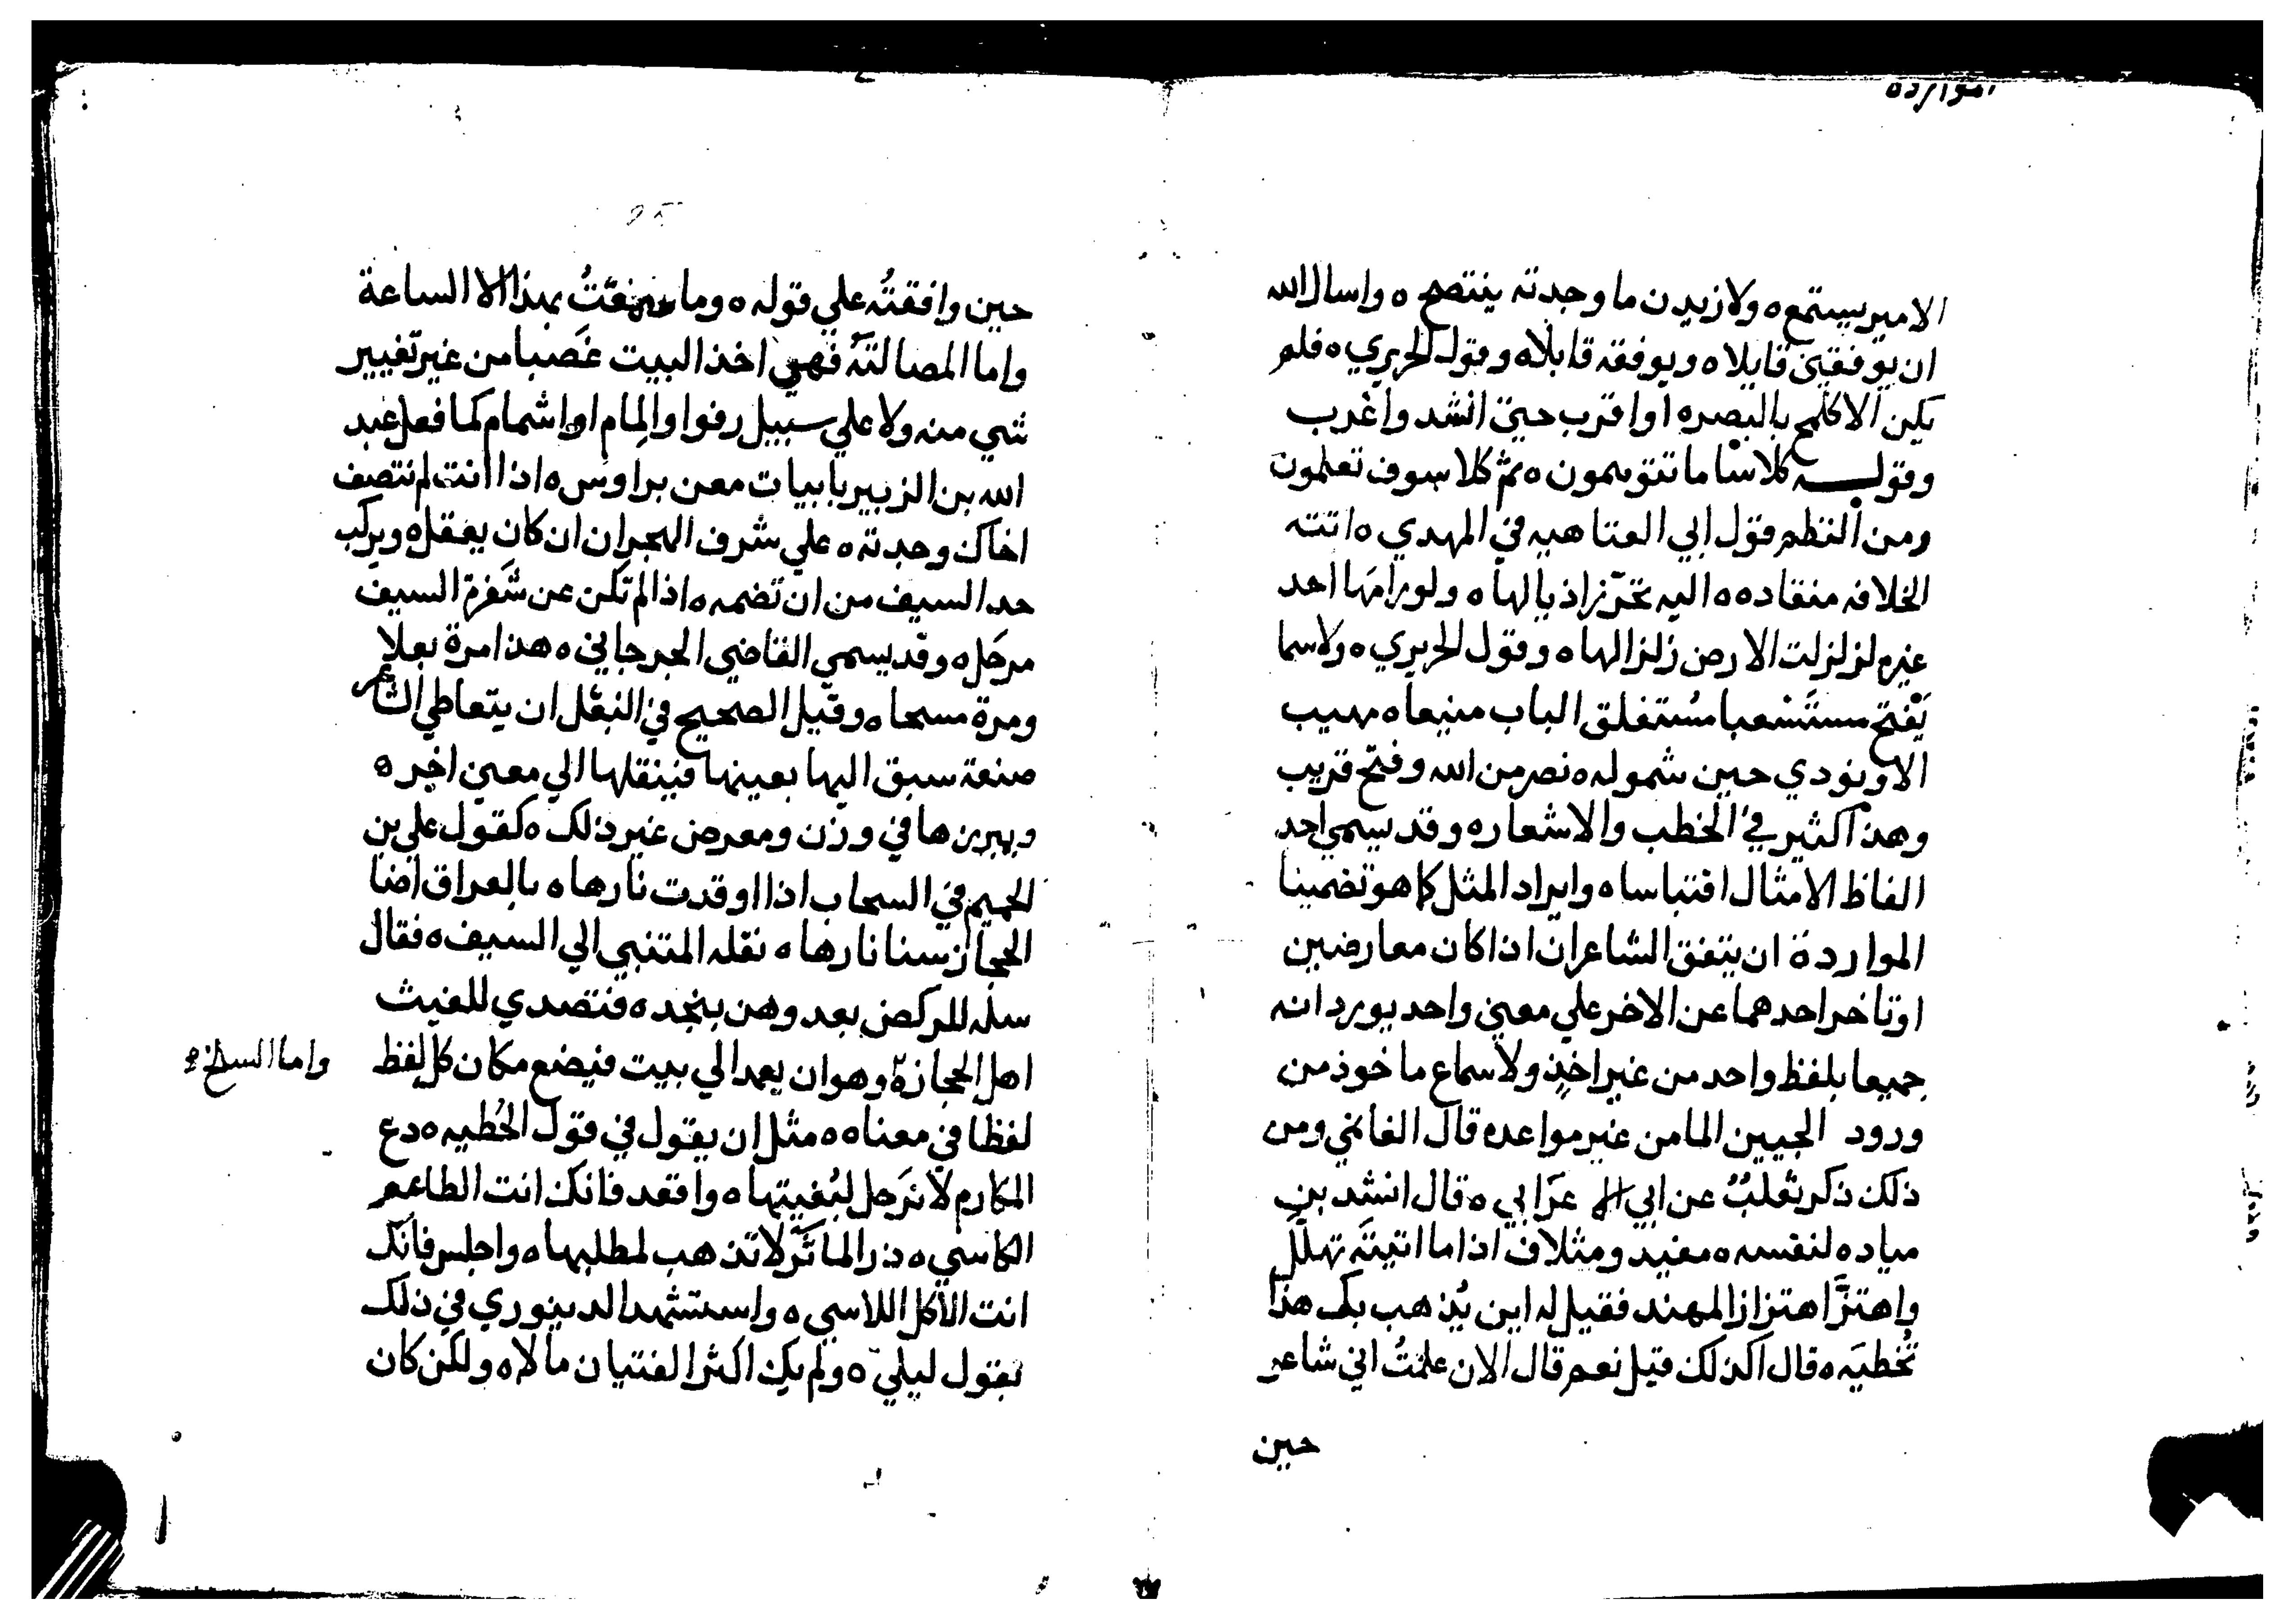 الموارده
الامير يستمع ه ولازيدن ما وجدته ينتصح ه واسال الله
ان يوفقني قايلا ه ويوفقه قابلا ه وقول الحريري ه فلم
يكن الا كلمح بالبصر ه او اقرب حتي انشد واغرب
وقوله كلا سا ما تتوهمون ه ثم كلا سوف تعلمون
ومن النظم قول ابي العتاهيه في المهدي ه اتته
الخلافه منقاده ه اليه تجرر اذيالها ه ولو رامها احد
غيره لزلزلت الارض زلزالها ه وقول الحريري ه ولا سما
يفتح مستصعبا مستغلق الباب منيعا ه مهيب
الا ونودي حين شموله ه نصر من الله وفتح قريب
وهذا كثير في الخطب والاشعار ه وقد يسمي احد
الفاظ الامثال اقتباسا ه وايراد المثل كما هو تضمينا
المواردة ان يتفق الشاعران اذا كان معارضين
او تاخر احدهما عن الاخر علي معني واحد يوردانه
جميعا بلفظ واحد من غير اخذ ولا سماع ماخوذ من
ورود الجيين الما من غير مواعده قال الغانمي ومن
ذلك ذكر ثعلب عن ابي الا عرابي ه قال انشد بن
مياده لنفسه ه مفيد ومتلاف اذا ما اتيته تهلل
واهتز اهتزاز المهند فقيل له اين يذهب بك هذا
تخطيه ه قال اكذلك قيل نعم قال الان علمت اني شاعر
حين
حين وافقته علي قوله ه وما سمعت بهذا الا الساعة
واما المصالته فهي اخذ البيت غصبا من غير تغيير
شي منه ولا علي سبيل رفوا والمام او اشمام كما فعل عبد
الله بن الزبير بابيات معن بن اوس ه اذا انت لم تنتصف
اخاك وجدته ه علي شرف الهجران ان كان يعقل ه ويركب
حد السيف من ان تضمه ه اذا لم تكن عن شفرة السيف
مرحل ه وقد يسمي القاضي الجرجاني ه هذا مرة نعلا
ومرة مسخا ه وقيل الصحيح في النقل ان يتعاطي الشاعر
صنعة سبق اليها بعينها فينقلها الي معني اخر ه
ويبرزها في وزن ومعرض غير ذلك ه كقول علي بن
الجهم في السحاب اذا اوقدت نارها ه بالعراق اضا
الحجاز سنا نارها ه نقله المتنبي الي السيف ه فقال
سله للركض بعد وهن بنجد ه فتصدي للغيث
اهل الحجازة وهو ان يعمد الي بيت فيضع مكان كل لفظ
واما السلخ
لفظا في معناه ه مثل ان يقول في قول الحطيه ه دع
المكارم لا ترحل لبغيتها ه واقعد فانك انت الطاعم
الكاسي ه ذر الماثر لا تذهب لمطلبها ه واجلس فانك
انت الاكل اللاسي ه واستشهد الدينوري في ذلك
بقول ليلي ه ولم يكن اكثر الفتيان مالا ه ولكن كان